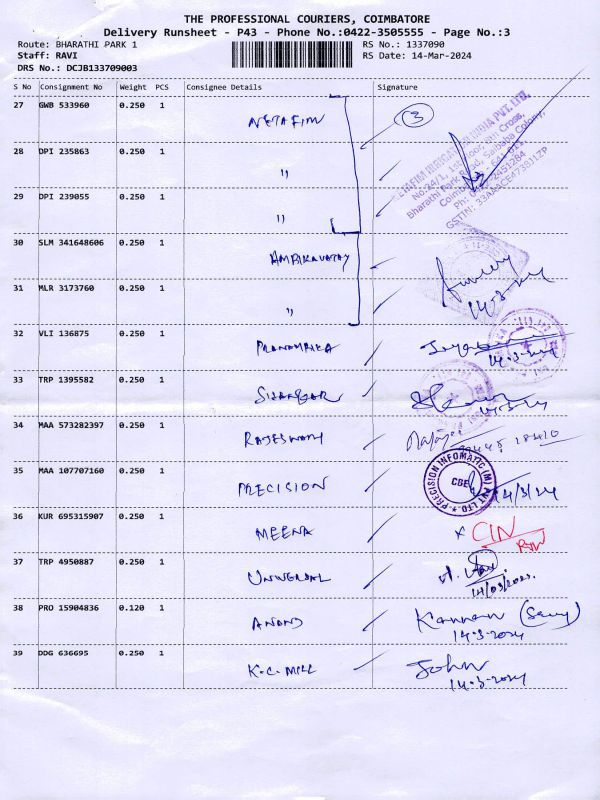 THE PROFESSIONAL COURIERS, COIMBATORE
Delivery Runsheet - P43 - Phone No.:0422-3505555 - Page No.:3
Route: BHARATHI PARK 1 RS No.: 1337090
Staff: RAVI RS Date: 14-Mar-2024
DRS No.: DCJB133709003
S No Consignment No Weight PCS Consignee Details Signature
27 GWB 533960 0.250 1 NETAFIM 3
28 DPI 235863 0.250 1 "
29 DPI 239055 0.250 1 "
NETAFIM IRRIGATION INDIA PVT. LTD.
Bharathi Park Road, Saibaba Colony,
GSTIN: 33AAACE4738J1ZP
30 SLM 341648606 0.250 1
14-3-24
31 MLR 3173760 0.250 1 "
32 VLI 136875 0.250 1
14-3-24
33 TRP 1395582 0.250 1
14-3-24
34 MAA 573282397 0.250 1 RAJESWARI
35 MAA 107707160 0.250 1 PRECISION
PRECISION INFOMATIC (M) PVT LTD
CBE
14/3/24
36 KUR 695315907 0.250 1 MEENA x CIN
37 TRP 4950887 0.250 1 UNIVERSAL
14/03/2024
38 PRO 15904836 0.120 1 ANAND Kannan
14-3-2024
39 DDG 636695 0.250 1 K.C. MILL John
14-3-2024